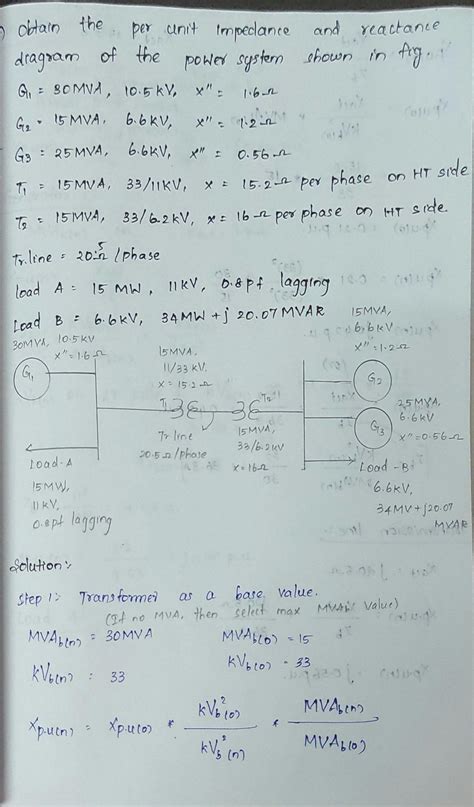 Obtain the per unit impedance and reactance
diagram of the power system shown in fig
G1 = 30MVA, 10.5 kV, x" = 1.6 Ω
G2 = 15 MVA, 6.6 kV, x" = 1.2 Ω
G3 = 25 MVA, 6.6kV, x" = 0.56 Ω
T1 = 15MVA, 33/11kV, x = 15.2 Ω per phase on HT side
T2 = 15MVA, 33/6.2kV, x = 16 Ω per phase on HT side
Tr.line = 20.5 Ω /phase
load A = 15 MW, 11kV, 0.8pf lagging
Load B = 6.6kV, 34MW + j 20.07 MVAR
30MVA, 10.5kV
x" = 1.6 Ω
G1
Load-A
15MW,
11kV,
0.8pf lagging
15MVA,
11/33 kV,
x = 15.2 Ω
T1
T2
Tr line
20.5 Ω /phase
15MVA,
33/6.2kV
x = 16 Ω
15MVA,
6.6kV
x" = 1.2 Ω
G2
25MVA,
6.6kV
G3
x" = 0.56 Ω
Load -B
6.6kV,
34MV + j20.07
MVAR
Solution:-
Step 1:- Transformer as a base value.
(If no MVA, then select max MVA value)
MVAb(n) = 30MVA MVAb(o) = 15
kVb(n) = 33 kVb(o) = 33
Xp.u(n) = Xp.u(o) * kVb²(o) / kVb²(n) * MVAb(n) / MVAb(o)